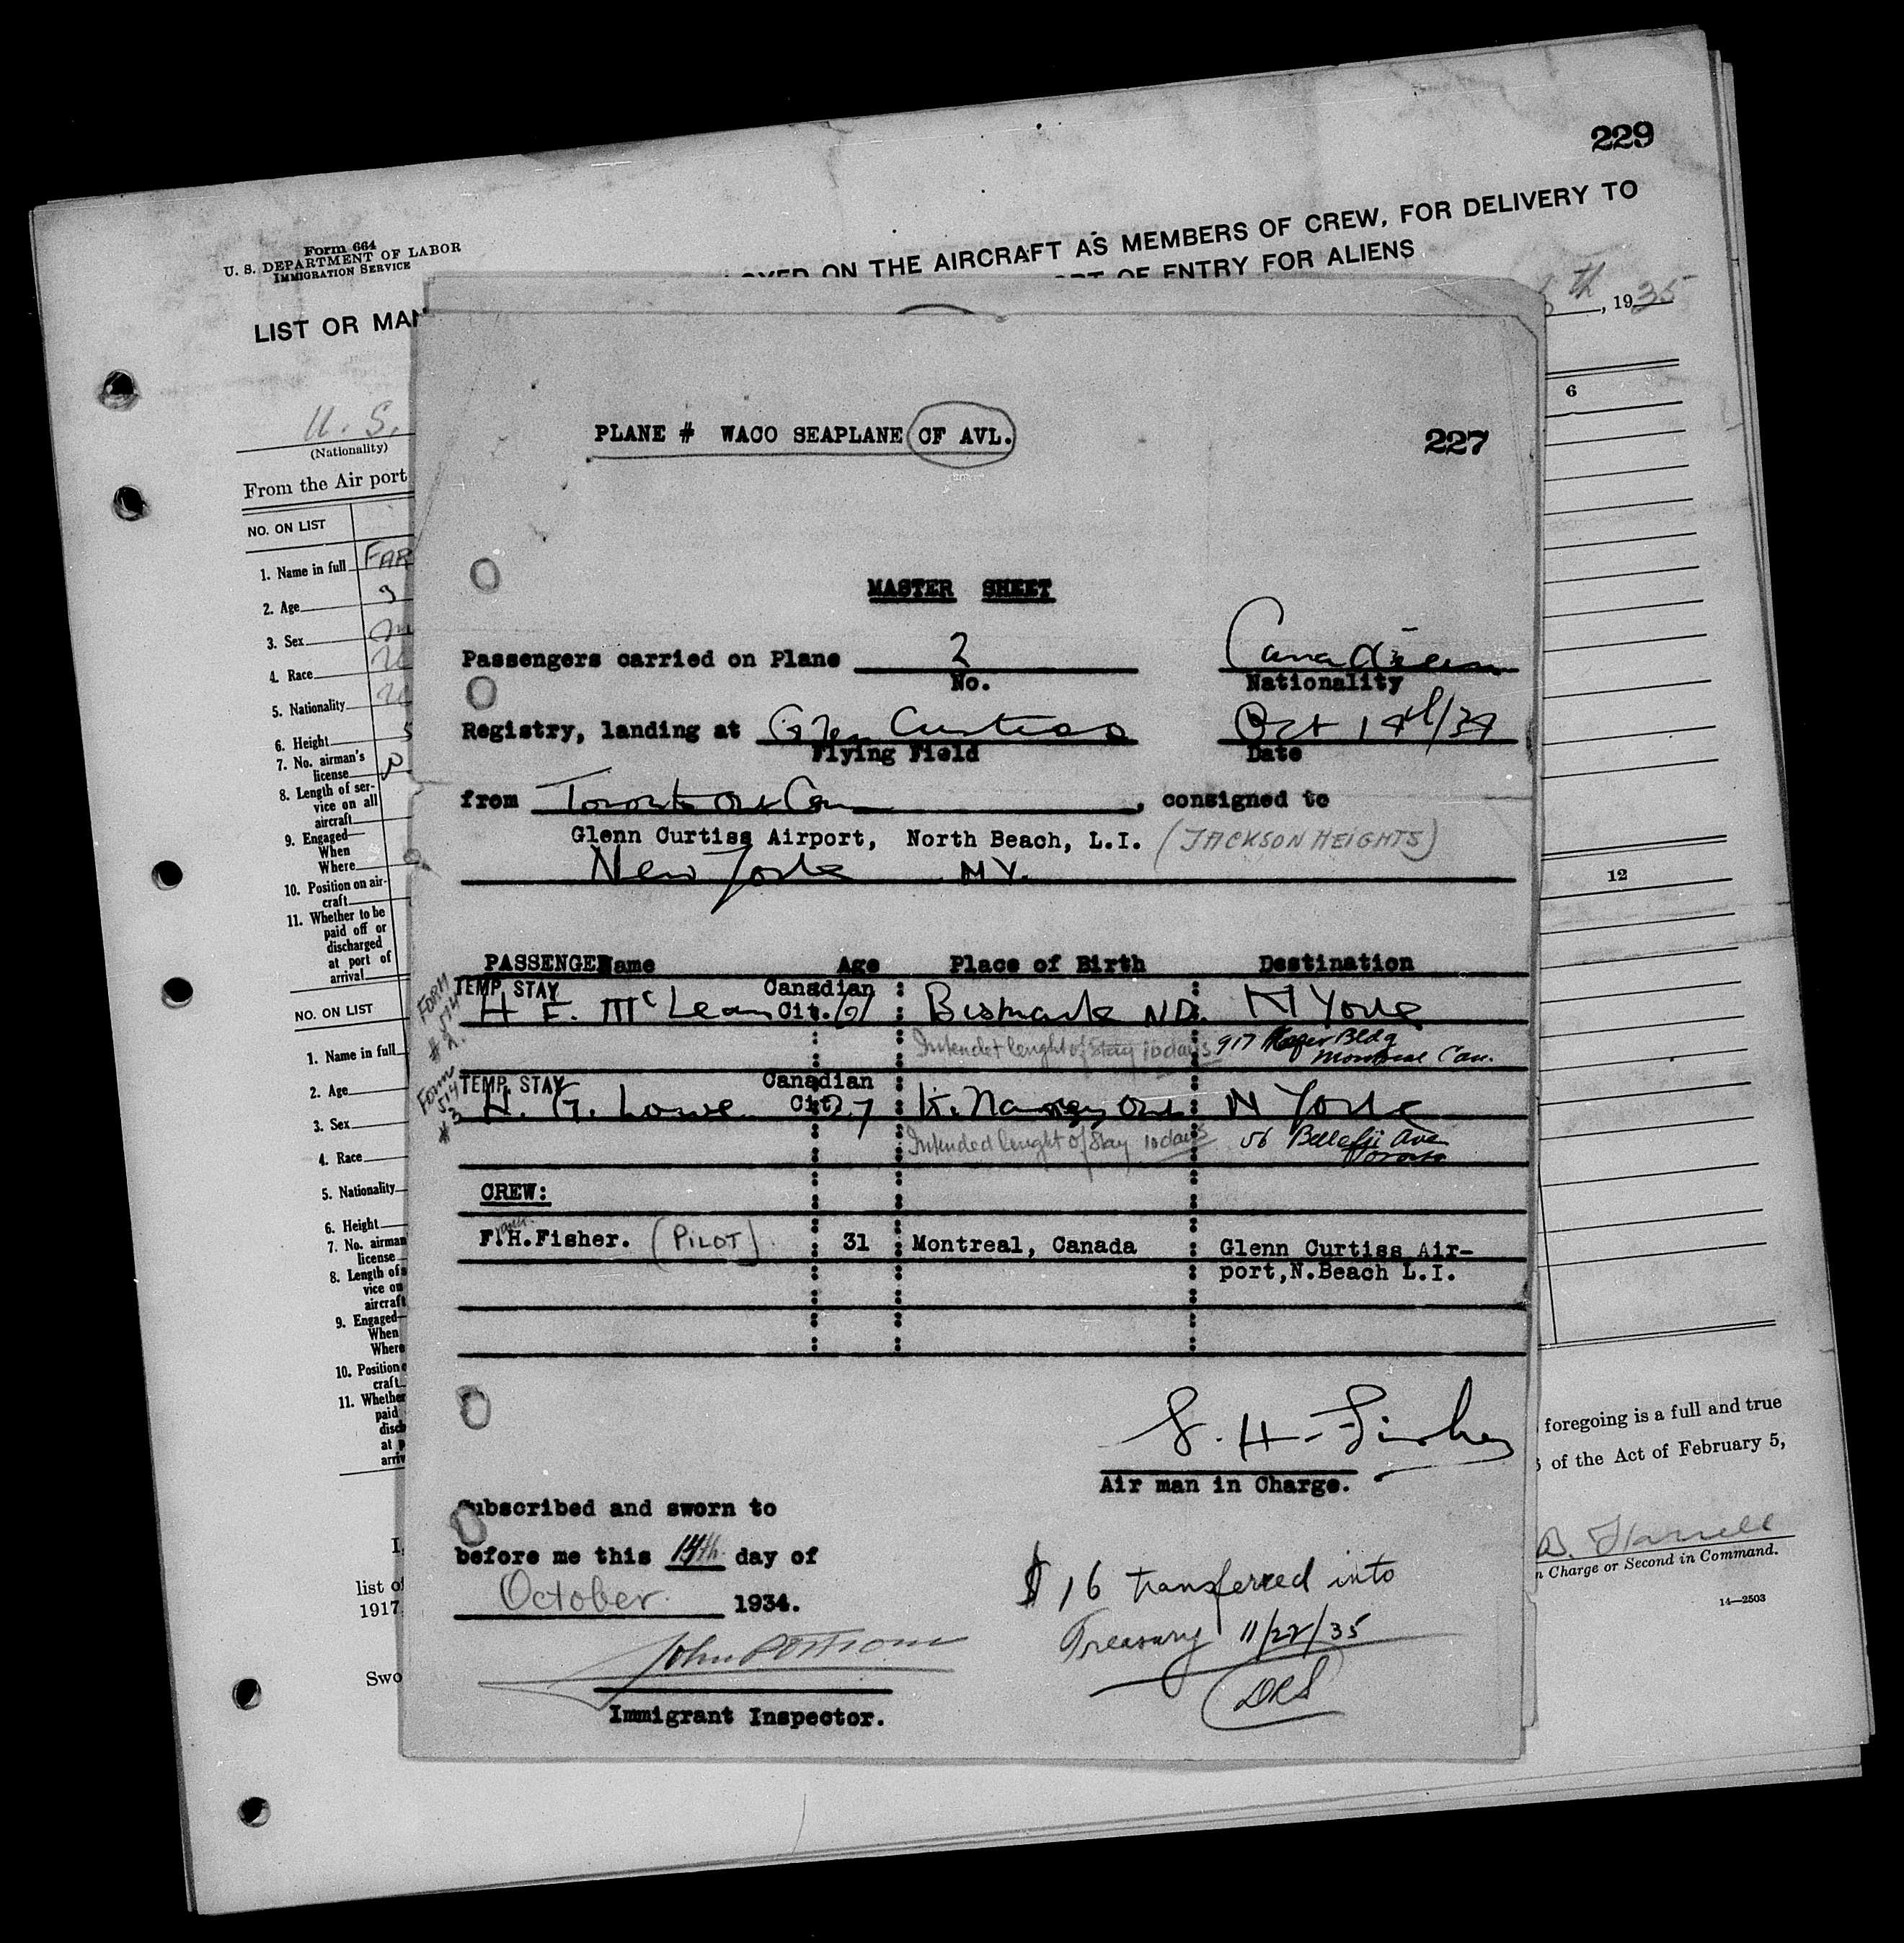 229
Form 664
U. S. DEPARTMENT OF LABOR
IMMIGRATION SERVICE
ON THE AIRCRAFT AS MEMBERS OF CREW, FOR DELIVERY TO
OF ENTRY FOR ALIENS
LIST OR MAN
th, 1935
U. S.
(Nationality)
From the Air port
NO. ON LIST
6
1. Name in full FAR
2. Age
3. Sex
4. Race
5. Nationality
6. Height 5
7. No. airman's
license P
8. Length of ser-
vice on all
aircraft
9. Engaged
When
Where
10. Position on air-
craft
11. Whether to be
paid off or
discharged
at port of
arrival
12
NO. ON LIST
1. Name in full
2. Age
3. Sex
4. Race
5. Nationality
6. Height
7. No. airman
license
8. Length of s
vice on
aircraft
9. Engaged
When
Where
10. Position
craft
11. Whether
paid
disch
at p
arriv
I,
list of
1917
Swo
foregoing is a full and true
of the Act of February 5,
B. Harrell
n Charge or Second in Command.
14—2503
PLANE # WACO SEAPLANE CF AVL.
227
MASTER SHEET
Passengers carried on Plane 2 Canadian
No. Nationality
Registry, landing at Glen Curtiss Oct 14th/34
Flying Field Date
from Toronto Ont Can, consigned to
Glenn Curtiss Airport, North Beach, L.I. (JACKSON HEIGHTS)
New York NY.
PASSENGER Name Age Place of Birth Destination
FORM 514 #2.
TEMP STAY Canadian
H F. McLean Cit. Bismark ND. N York
Intendet lenght of stay 10 days 917 Bldg
Montreal Can.
Form 514 #3
TEMP STAY Canadian
H. G. Lowe Cit. 27 Ont N York
Intended lenght of stay 10 days 56 Ave
Toronto
CREW:
F.H.Fisher. (PILOT) 31 Montreal, Canada Glenn Curtiss Air-
port,N.Beach L.I.
F. H. Fisher
Air man in Charge.
Subscribed and sworn to
before me this 14th day of
October 1934.
Immigrant Inspector.
$16 transferred into
Treasury 11/22/35
DRS